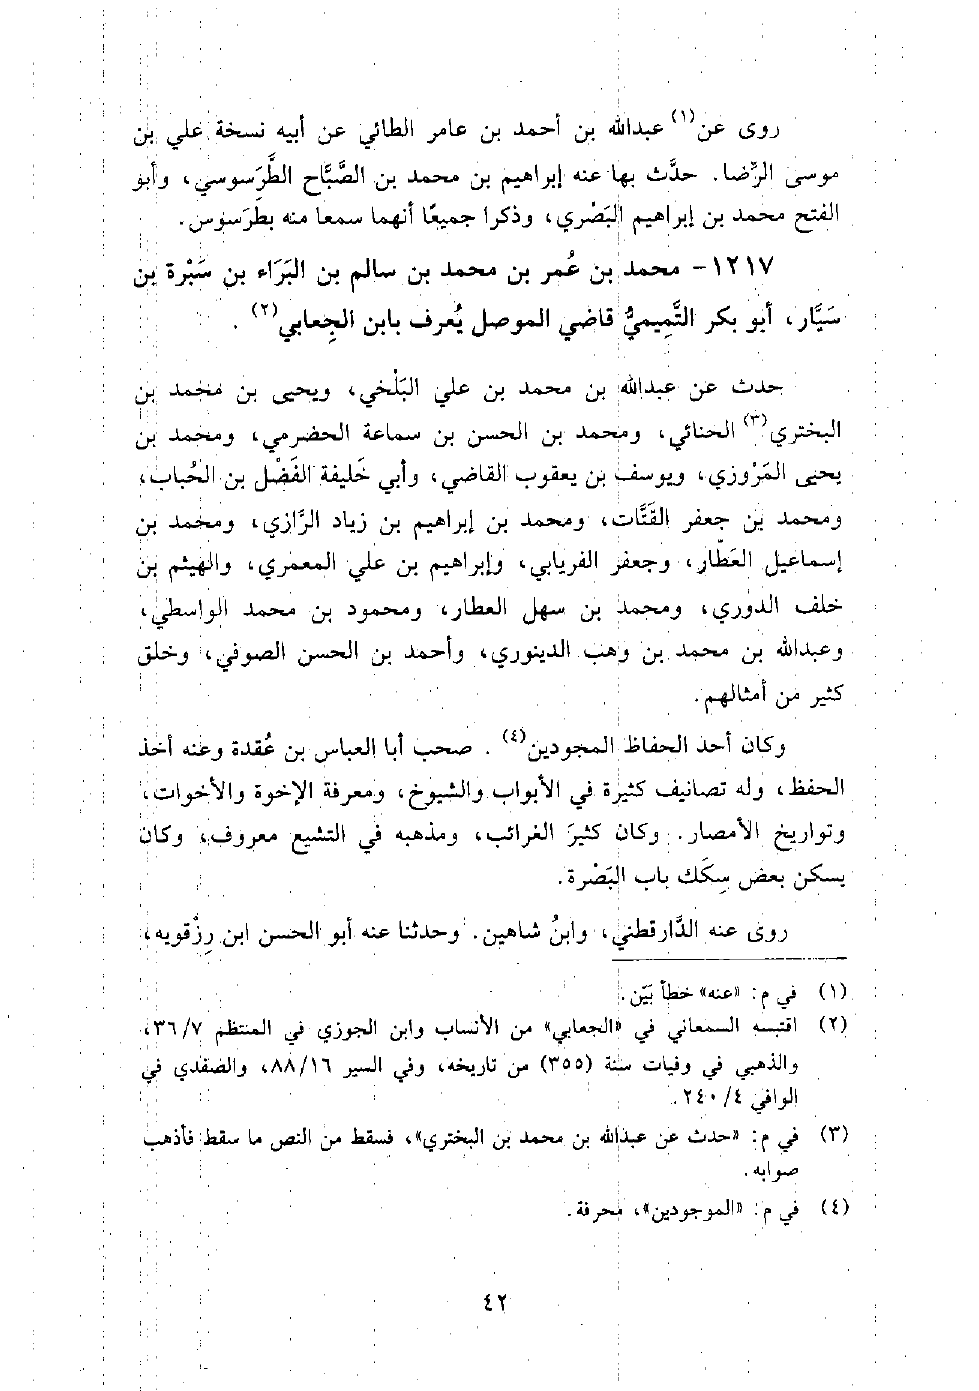 روى عن(١) عبدالله بن أحمد بن عامر الطائي عن أبيه نسخة علي بن
موسى الرِّضا. حدَّث بها عنه إبراهيم بن محمد بن الصَّبَّاح الطَّرَسوسي، وأبو
الفتح محمد بن إبراهيم البَصْري، وذكرا جميعًا أنهما سمعا منه بطَرَسُوس.
١٢١٧- محمد بن عُمر بن محمد بن سالم بن البَرَاء بن سَبْرة بن
سَيَّار، أبو بكر التَّمِيميُّ قاضي الموصل يُعرف بابن الجِعابي(٢).
حدث عن عبدالله بن محمد بن علي البَلْخي، ويحيى بن محمد بن
البختري(٣) الحنائي، ومحمد بن الحسن بن سماعة الحضرمي، ومحمد بن
يحيى المَرْوزي، ويوسف بن يعقوب القاضي، وأبي خَليفة الفَضْل بن الحُباب،
ومحمد بن جعفر القَتَّات، ومحمد بن إبراهيم بن زياد الرَّازي، ومحمد بن
إسماعيل العَطّار، وجعفر الفريابي، وإبراهيم بن علي المعمري، والهيثم بن
خلف الدوري، ومحمد بن سهل العطار، ومحمود بن محمد الواسطي،
وعبدالله بن محمد بن وهب الدينوري، وأحمد بن الحسن الصوفي، وخلق
كثير من أمثالهم.
وكان أحد الحفاظ المجودين(٤). صحب أبا العباس بن عُقدة وعنه أخذ
الحفظ، وله تصانيف كثيرة في الأبواب والشيوخ، ومعرفة الإخوة والأخوات،
وتواريخ الأمصار. وكان كثيرَ الغرائب، ومذهبه في التشيع معروف، وكان
يسكن بعض سِكَك باب البَصْرة.
روى عنه الدَّارقطني، وابنُ شاهين. وحدثنا عنه أبو الحسن ابن رِزْقويه،
(١) في م: «عنه» خطأ بَيّن.
(٢) اقتبسه السمعاني في «الجعابي» من الأنساب وابن الجوزي في المنتظم ٧/ ٣٦،
والذهبي في وفيات سنة (٣٥٥) من تاريخه، وفي السير ١٦/ ٨٨، والصفدي في
الوافي ٤/ ٢٤٠.
(٣) في م: «حدث عن عبدالله بن محمد بن البختري»، فسقط من النص ما سقط فأذهب
صوابه.
(٤) في م: «الموجودين»، محرفة.
٤٢